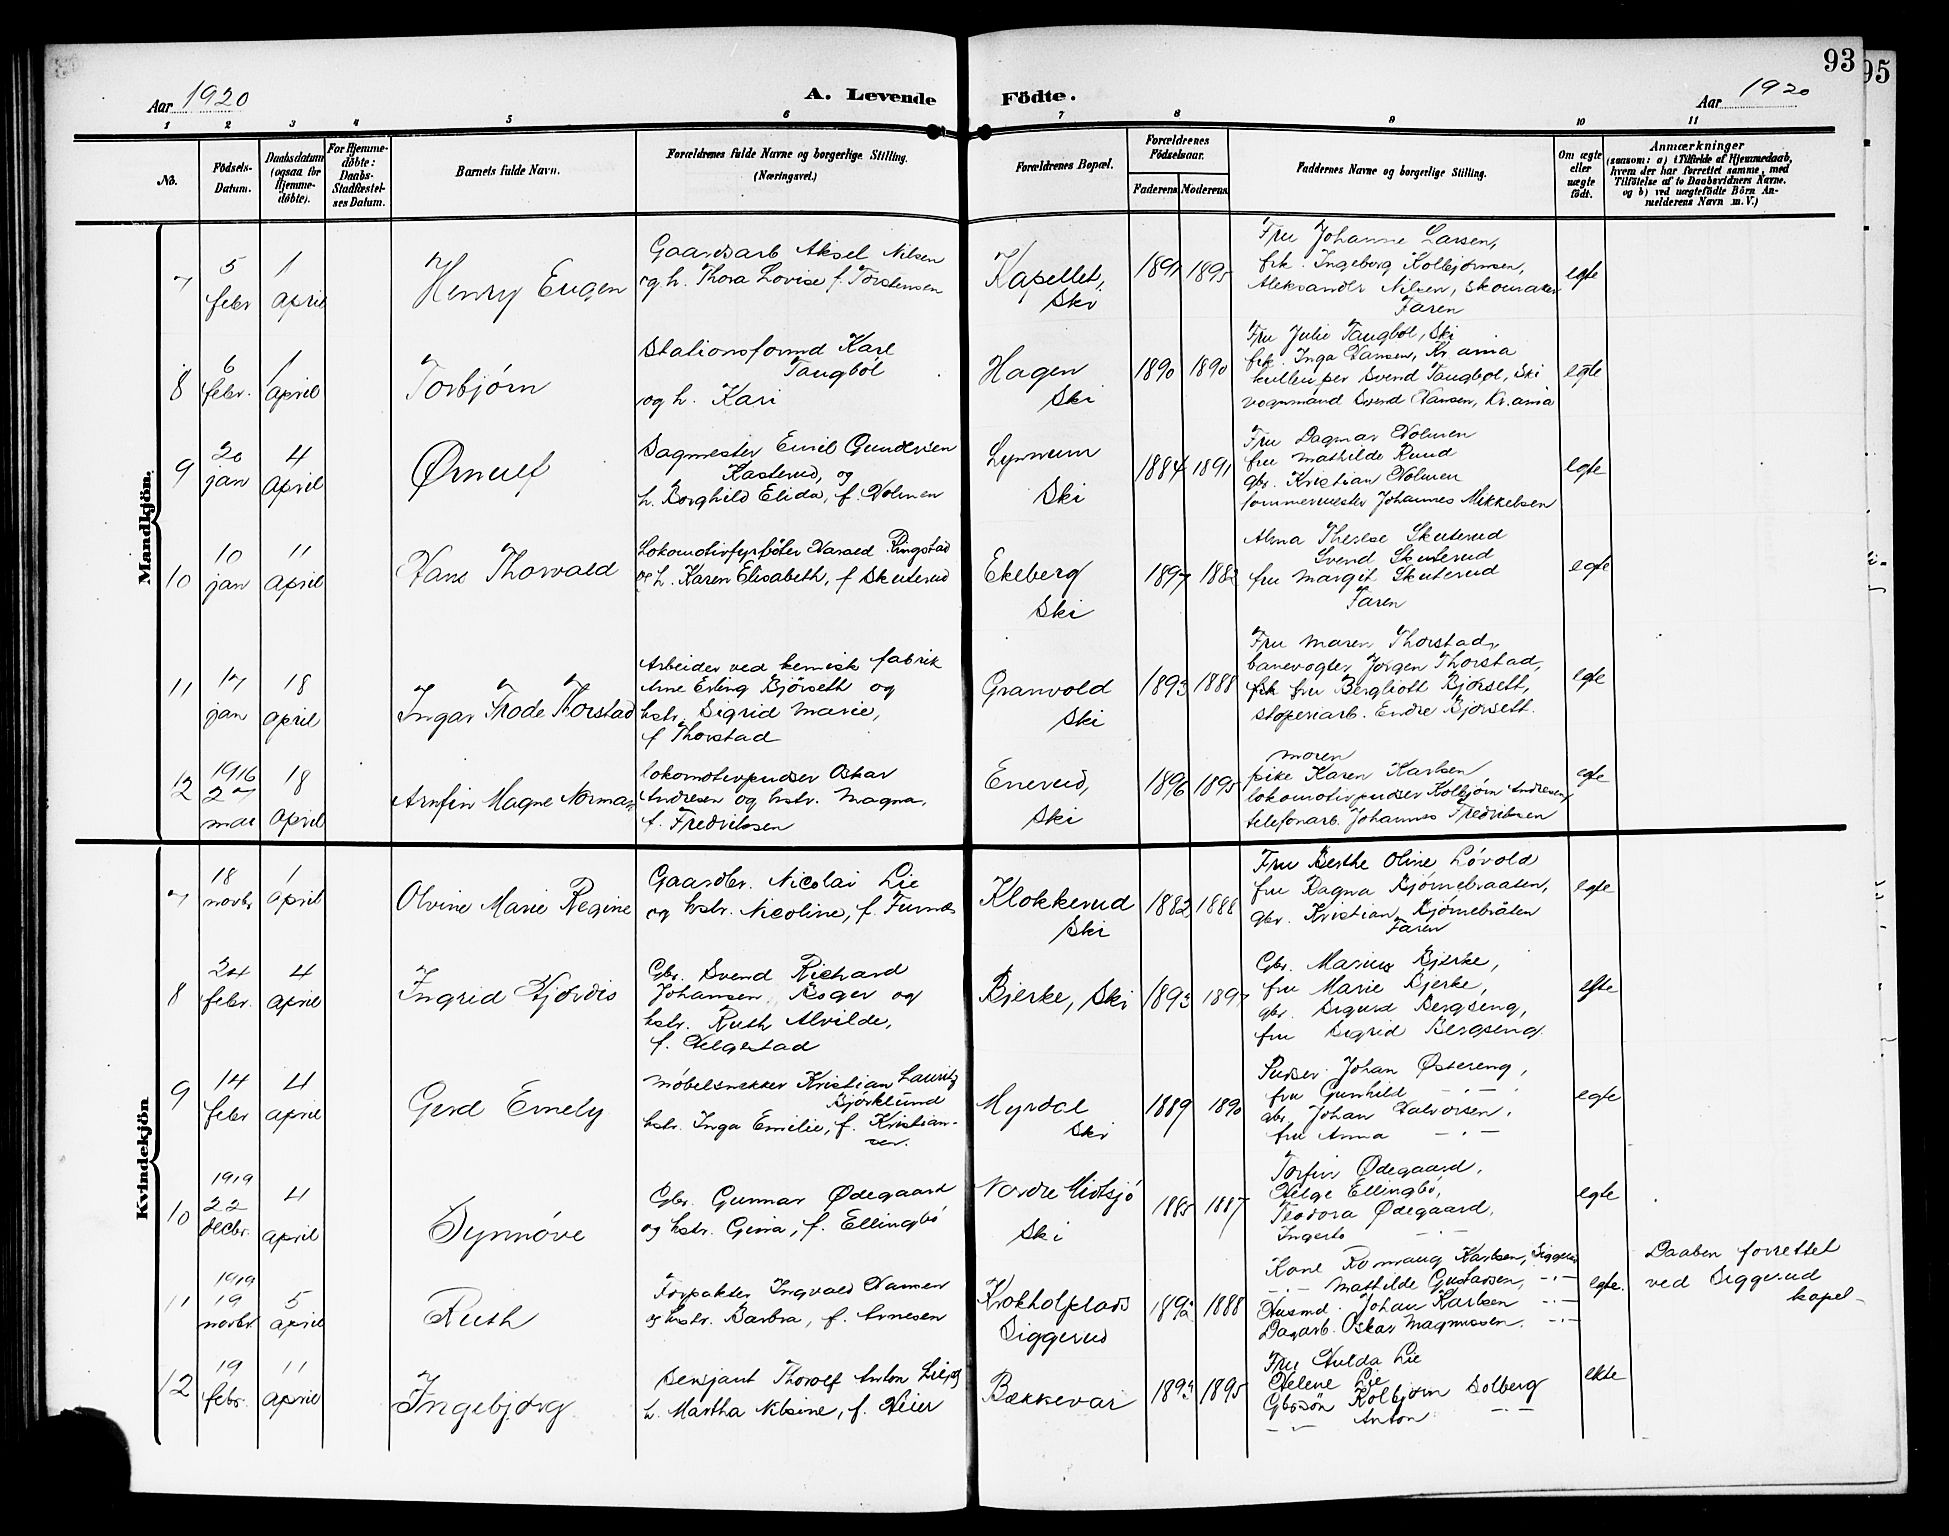 93
95
Aar 1920
A. Levende
Födte.
Aar 1920
1 2 3 4 5 6 7 8 9 10 11
No.
Födsels-
Datum.
Daabsdatum
(ogsaa for
Hjemme-
döbte).
For Hjemme-
döbte:
Daabs-
Stadfæstel-
ses Datum.
Barnets fulde Navn.
Forældrenes fulde Navne og borgerlige Stilling.
(Næringsvei.)
Forældrenes Bopæl.
Forældrenes
Födselsaar.
Faderens Moderens
Faddernes Navne og borgerlige Stilling.
Om ægte
eller
uægte
födt.
Anmærkninger
(saasom: a) i Tilfælde af Hjemmedaab,
hvem der har forrettet samme, med
Tilföielse af to Daabsvidners Navne.
og b) ved uægtefödte Börn An-
melderens Navn m. V.)
Mandkjön.
7
5
febr
1
april
Henry Eugen
Gaardsarb Aksel Nilsen
og h. Thora Lovise f. Torstensen
Kapellet,
Ski
1891 1895
Fru Johanne Larsen,
frk. Ingeborg Kolbjørnsen,
Aleksander Nilsen, skomaker
Faren
egte
8
6
febr.
1
april
Torbjørn
Stationsformd Karl
Taugbøl
og h. Kari
Hagen
Ski
1890 1890
Fru Julie Taugbøl, Ski
frk. Inga Hansen, Kr.ania
Svend Taugbøl, Ski
vognmand Svend Hansen, Kr.ania
egte
9
20
jan
4
april
Ørnulf
Sagmester Emil Gundersen
Kasterud, og
h. Borghild Elida, f. Holmen
Ski
1884 1891
Fru Dagmar Holmen
fru Mathilde Ruud
gbr. Kristian Holmen
tømmermester Johannes Mikkelsen
egte
10
10
jan
11
april
Hans Thorvald
Lokomotivfyrbøter Harald Ringstad
og h. Karen Elisabeth, f Skuterud
Ekeberg
Ski
1897 1882
Alma Therese Skuterud
Svend Skuterud
fru Margit Skuterud
Faren
egte
11
17
jan
18
april
Ingar Frode Thorstad
Arbeider ved kemisk fabrik
Arne Erling Bjørseth og
hstr. Sigrid Marie,
f Thorstad
Granvold
Ski
1893 1888
Fru Maren Thorstad,
banevogter Jørgen Thorstad,
frk fru Bergliott Bjørsett,
støperiarb. Endre Bjørsett.
egte
12
1916
27
mar
18
april
Arnfin Magne Norman
lokomotivpudser Oskar
Andresen og hstr. Magna,
f. Fredriksen
Enerud,
Ski
1896 1895
Moren
pike Karen Karlsen
lokomotivpudser Kolbjørn Andresen,
telefonarb. Johannes Fredriksen
egte
Kvindekjön
7
18
novbr
1
april
Olvine Marie Regine
Gaardbr. Nicolai Lie
og hstr. Nicoline, f. Furnes
Klokkerud
Ski
1882 1888
Fru Berthe Oline Løvold
fru Ragna Bjørnebraaten,
gbr. Kristian Bjørnebråten
Faren
egte
8
24
febr.
4
april
Ingrid Hjørdis
Gbr. Svend Richard
Johansen Boger og
hstr. Ruth Alvilde,
f. Helgestad
Bjerke, Ski
1893 1897
Gbr. Marius Bjerke,
fru Marie Bjerke,
gbr. Sigurd Bergseng,
fru Sigrid Bergseng.
egte
9
14
febr
4
april
Gerd Emely
Møbelsnekker Kristian Lauritz
Bjørklund
hstr. Inga Emilie, f. Kristian-
sen.
Myrdal
Ski
1889 1890
Pudser Johan Østereng,
fru Gunhild — " —
gbr. Johan Halvorsen,
fru Anna — " —
egte
10
1919
22
decbr.
4
april
Synnøve
Gbr. Gunnar Ødegaard
og hstr. Gina, f. Ellingbø
Nordre Midtsjø
Ski
1885 1887
Torfin Ødegaard,
Helge Ellingbø,
Teodora Ødegaard,
egte
11
1919
19
novbr
5
april
Ruth
Forpakter Ingvald Hansen
og hstr. Barbra, f. Arnesen
Krokholplads
Siggerud
1892 1888
Kone Romaug Karlsen, Siggerud
— " — Mathilde Gustavsen, — " —
Husmd. Johan Karlsen — " —
Dagarb. Oskar Magnussen. — " —
egte.
Daaben forrettet
ved Siggerud
kapel
12
19
febr.
11
april
Ingebjørg
Sersjant Thorolf Anton Lie og
h. Martha Nilsine, f. Heier
Bækkevar
1893 1895
Fru Hulda Lie
Helene Lie
Gbrsøn Kolbjørn Solberg
— " — Anton — " —
ekte